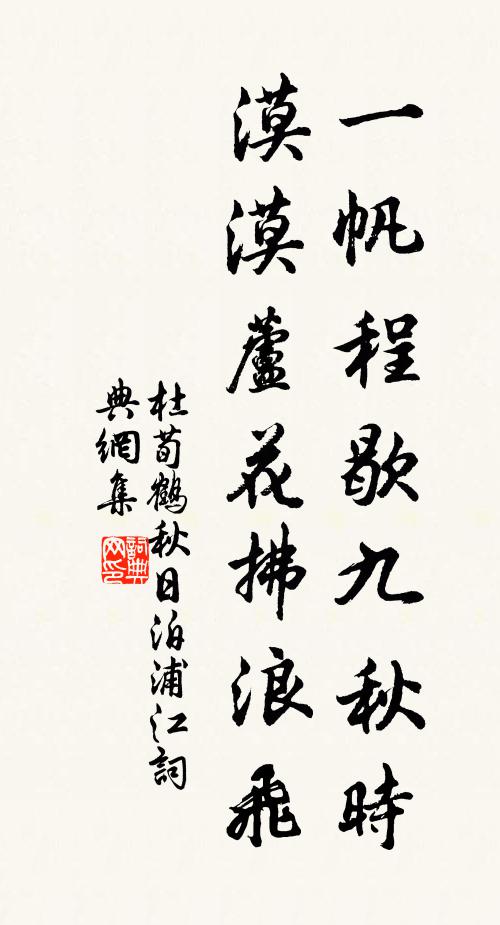 一帆程歇九秋時
漠漠蘆花拂浪飛
杜荀鶴秋日泊浦江詞
典網集
詞典
网印